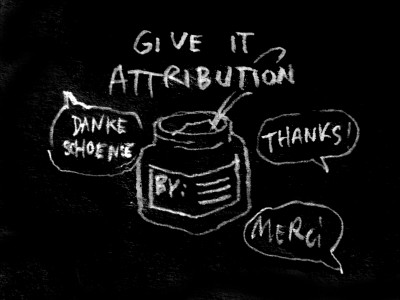 GIVE IT
ATTRIBUTION
DANKE
SCHOENSE
THANKS!
BY:
MERCi